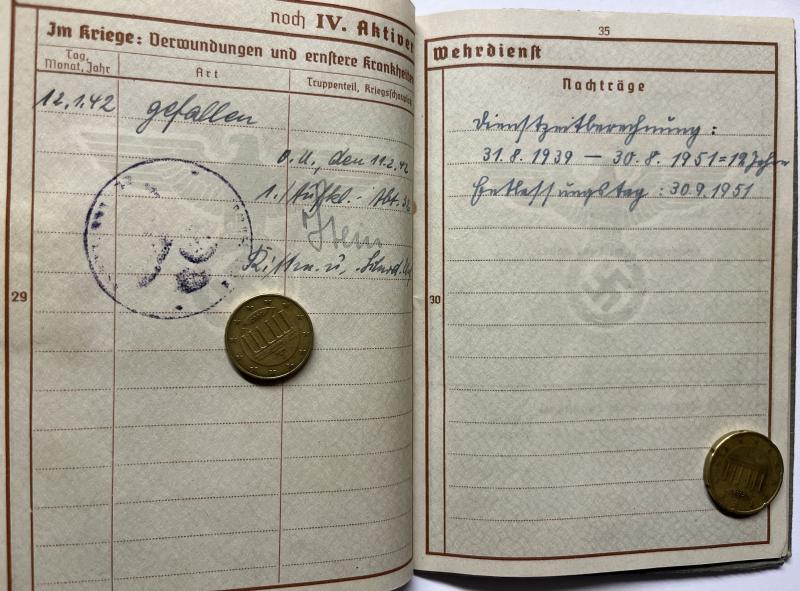 noch IV. Aktiver
Im Kriege: Verwundungen und ernstere Krankheiten
Tag, Monat, Jahr
Art
Truppenteil, Kriegsschauplatz
12.1.42 gefallen
O.U., den 11.2.42
1./Aufkl.-Abt.
Rittm. u.
29
35
Wehrdienst
Nachträge
Dienstzeitberechnung:
31.8.1939 – 30.8.1951 = 12 Jahre
Entlassungstag: 30.9.1951
30